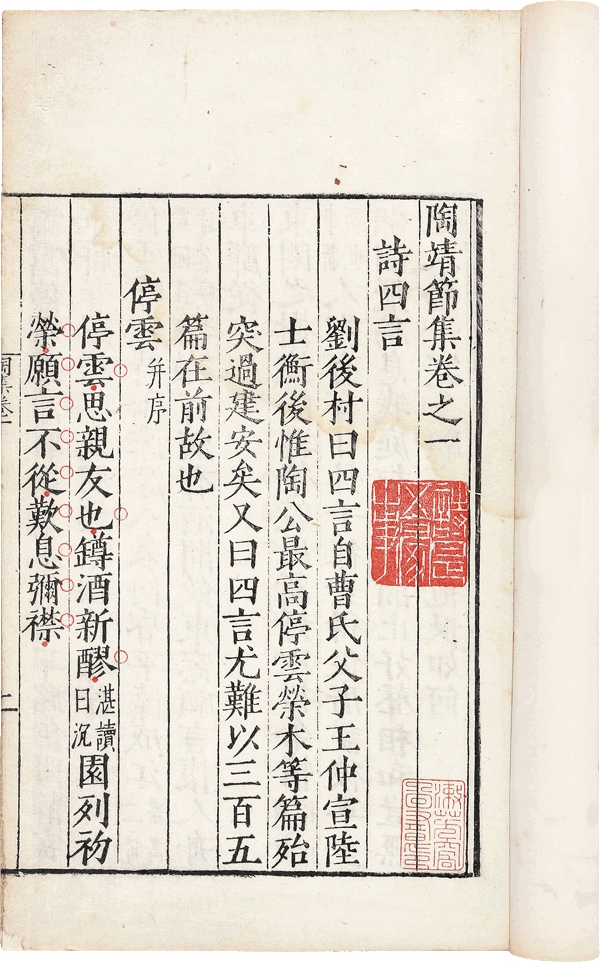 陶靖節集卷之一
詩四言
劉後村曰四言自曹氏父子王仲宣陸
士衡後惟陶公最高停雲榮木等篇殆
突過建安矣又曰四言尤難以三百五
篇在前故也
停雲并序
停雲思親友也罇酒新醪湛讀曰沉園列初
榮願言不從歎息彌襟
陶集卷一